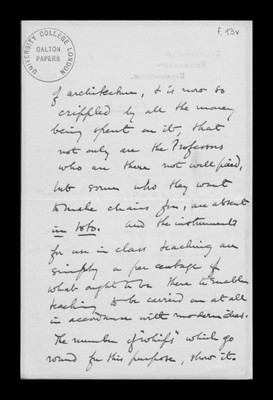 F. 13v
UNIVERSITY COLLEGE LONDON
GALTON
PAPERS
of architecture, & is now so
crippled by all the money
being spent on it, that
not only are the Professors
who are there not well paid,
but some who they want
to make chairs for, are absent
in toto. And the instruments
for use in class teaching are
simply a percentage of
what ought to be there to enable
teaching to be carried on at all
in accordance with modern ideas.
The number of "whips" which go
round for this purpose, show it.